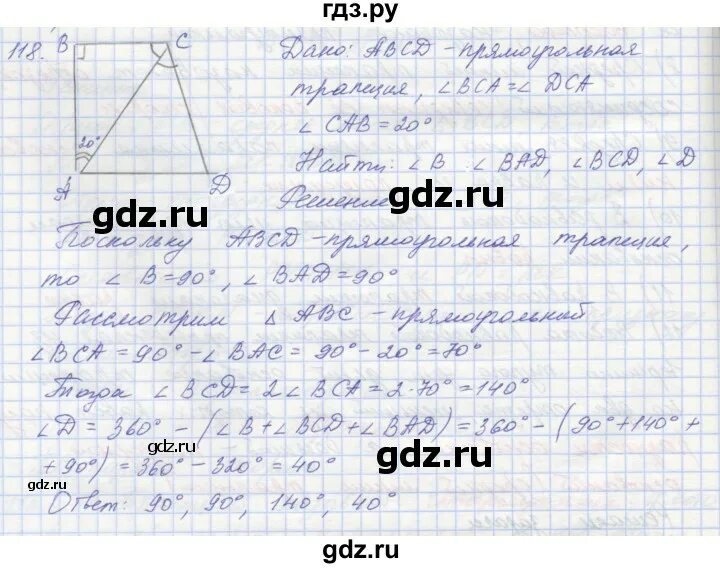 гдз.ру
118.
B C
20°
A D
Дано: ABCD - прямоугольная
трапеция, ∠BCA = ∠DCA
∠CAB = 20°
Найти: ∠B ∠BAD, ∠BCD, ∠D
Решение
gdz.ru
gdz.ru
Поскольку ABCD - прямоугольная трапеция,
то ∠B = 90°, ∠BAD = 90°
Рассмотрим △ABC - прямоугольный
∠BCA = 90° - ∠BAC = 90° - 20° = 70°
Тогда ∠BCD = 2∠BCA = 2·70° = 140°
∠D = 360° - (∠B + ∠BCD + ∠BAD) = 360° - (90° + 140° +
+ 90°) = 360° - 320° = 40°
gdz.ru
gdz.ru
gdz.ru
Ответ: 90°, 90°, 140°, 40°
gdz.ru